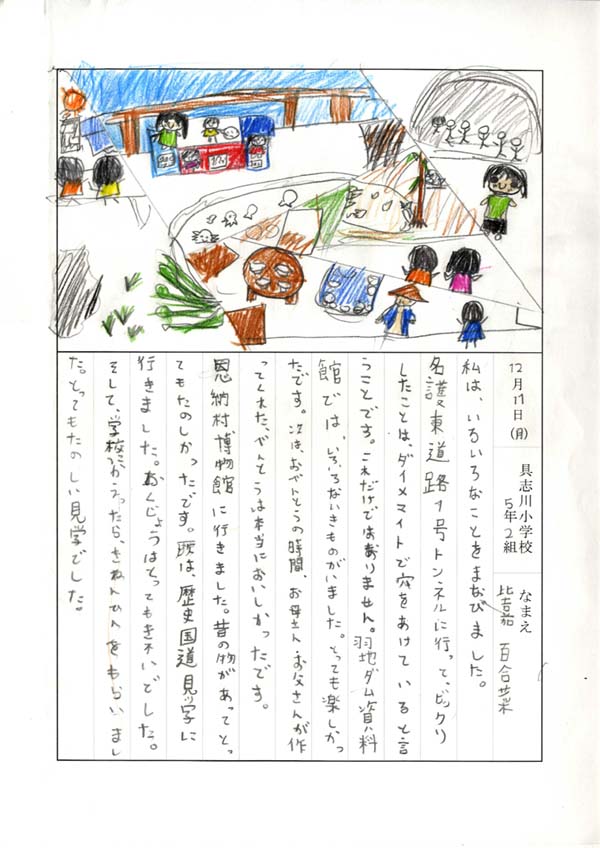 12月17日(月)
具志川小学校
5年2組
なまえ
比嘉 百合菜
私は、いろいろなことをまなびました。
名護東道路1号トンネルに行って、ビックリ
したことは、ダイメマイトで穴をあけていると言
うことです。これだけではありません。羽地ダム資料
館では、いろいろないきものがいました。とっても楽しかっ
たです。次は、おべんとうの時間、お母さん・お父さんが作
ってくれた、べんとうは本当においしかったです。
恩納村博物館に行きました。昔の物があってとっ
てもたのしかったです。次は、歴史国道見学に
行きました。おくじょうはとってもきれいでした。
そして、学校にかえったら、きねんひんをもらいまし
た。とってもたのしい見学でした。